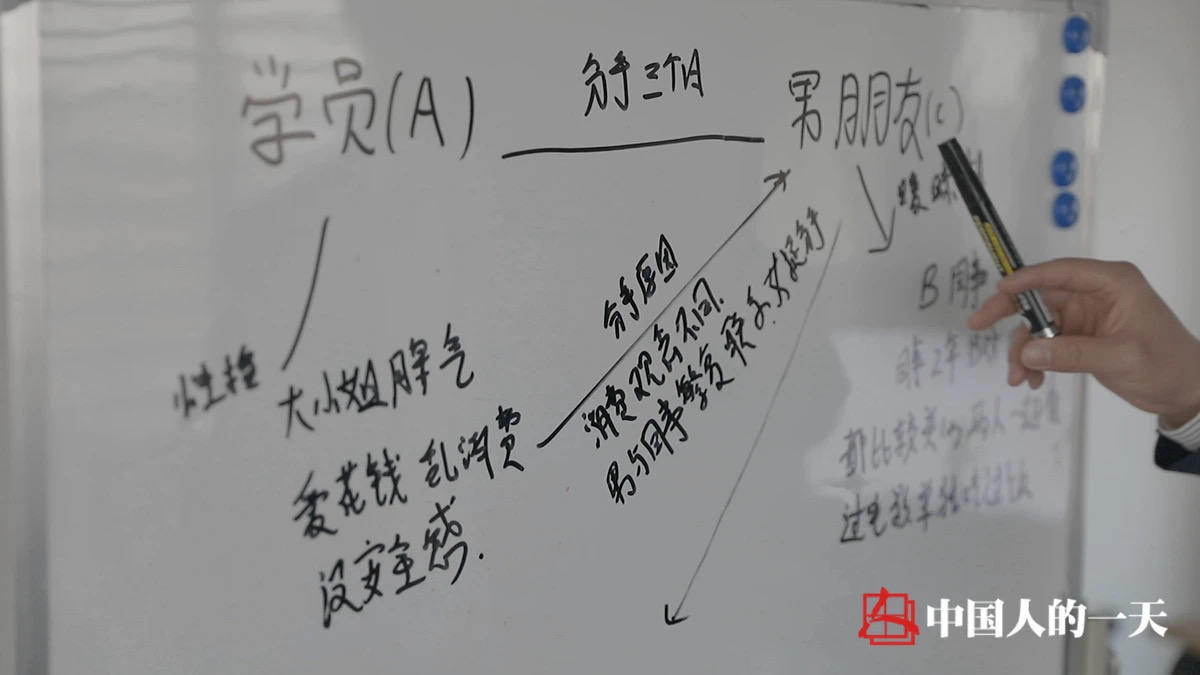 学员(A)
分手三个月
男朋友(c)
暧昧
B 同事
分手原因
消费观念不同.
男与同事繁复联系.女提分手
性格
大小姐脾气
爱花钱 乱消费
没安全感.
同事2年
都比较关心,两人一起
过
中国人的一天